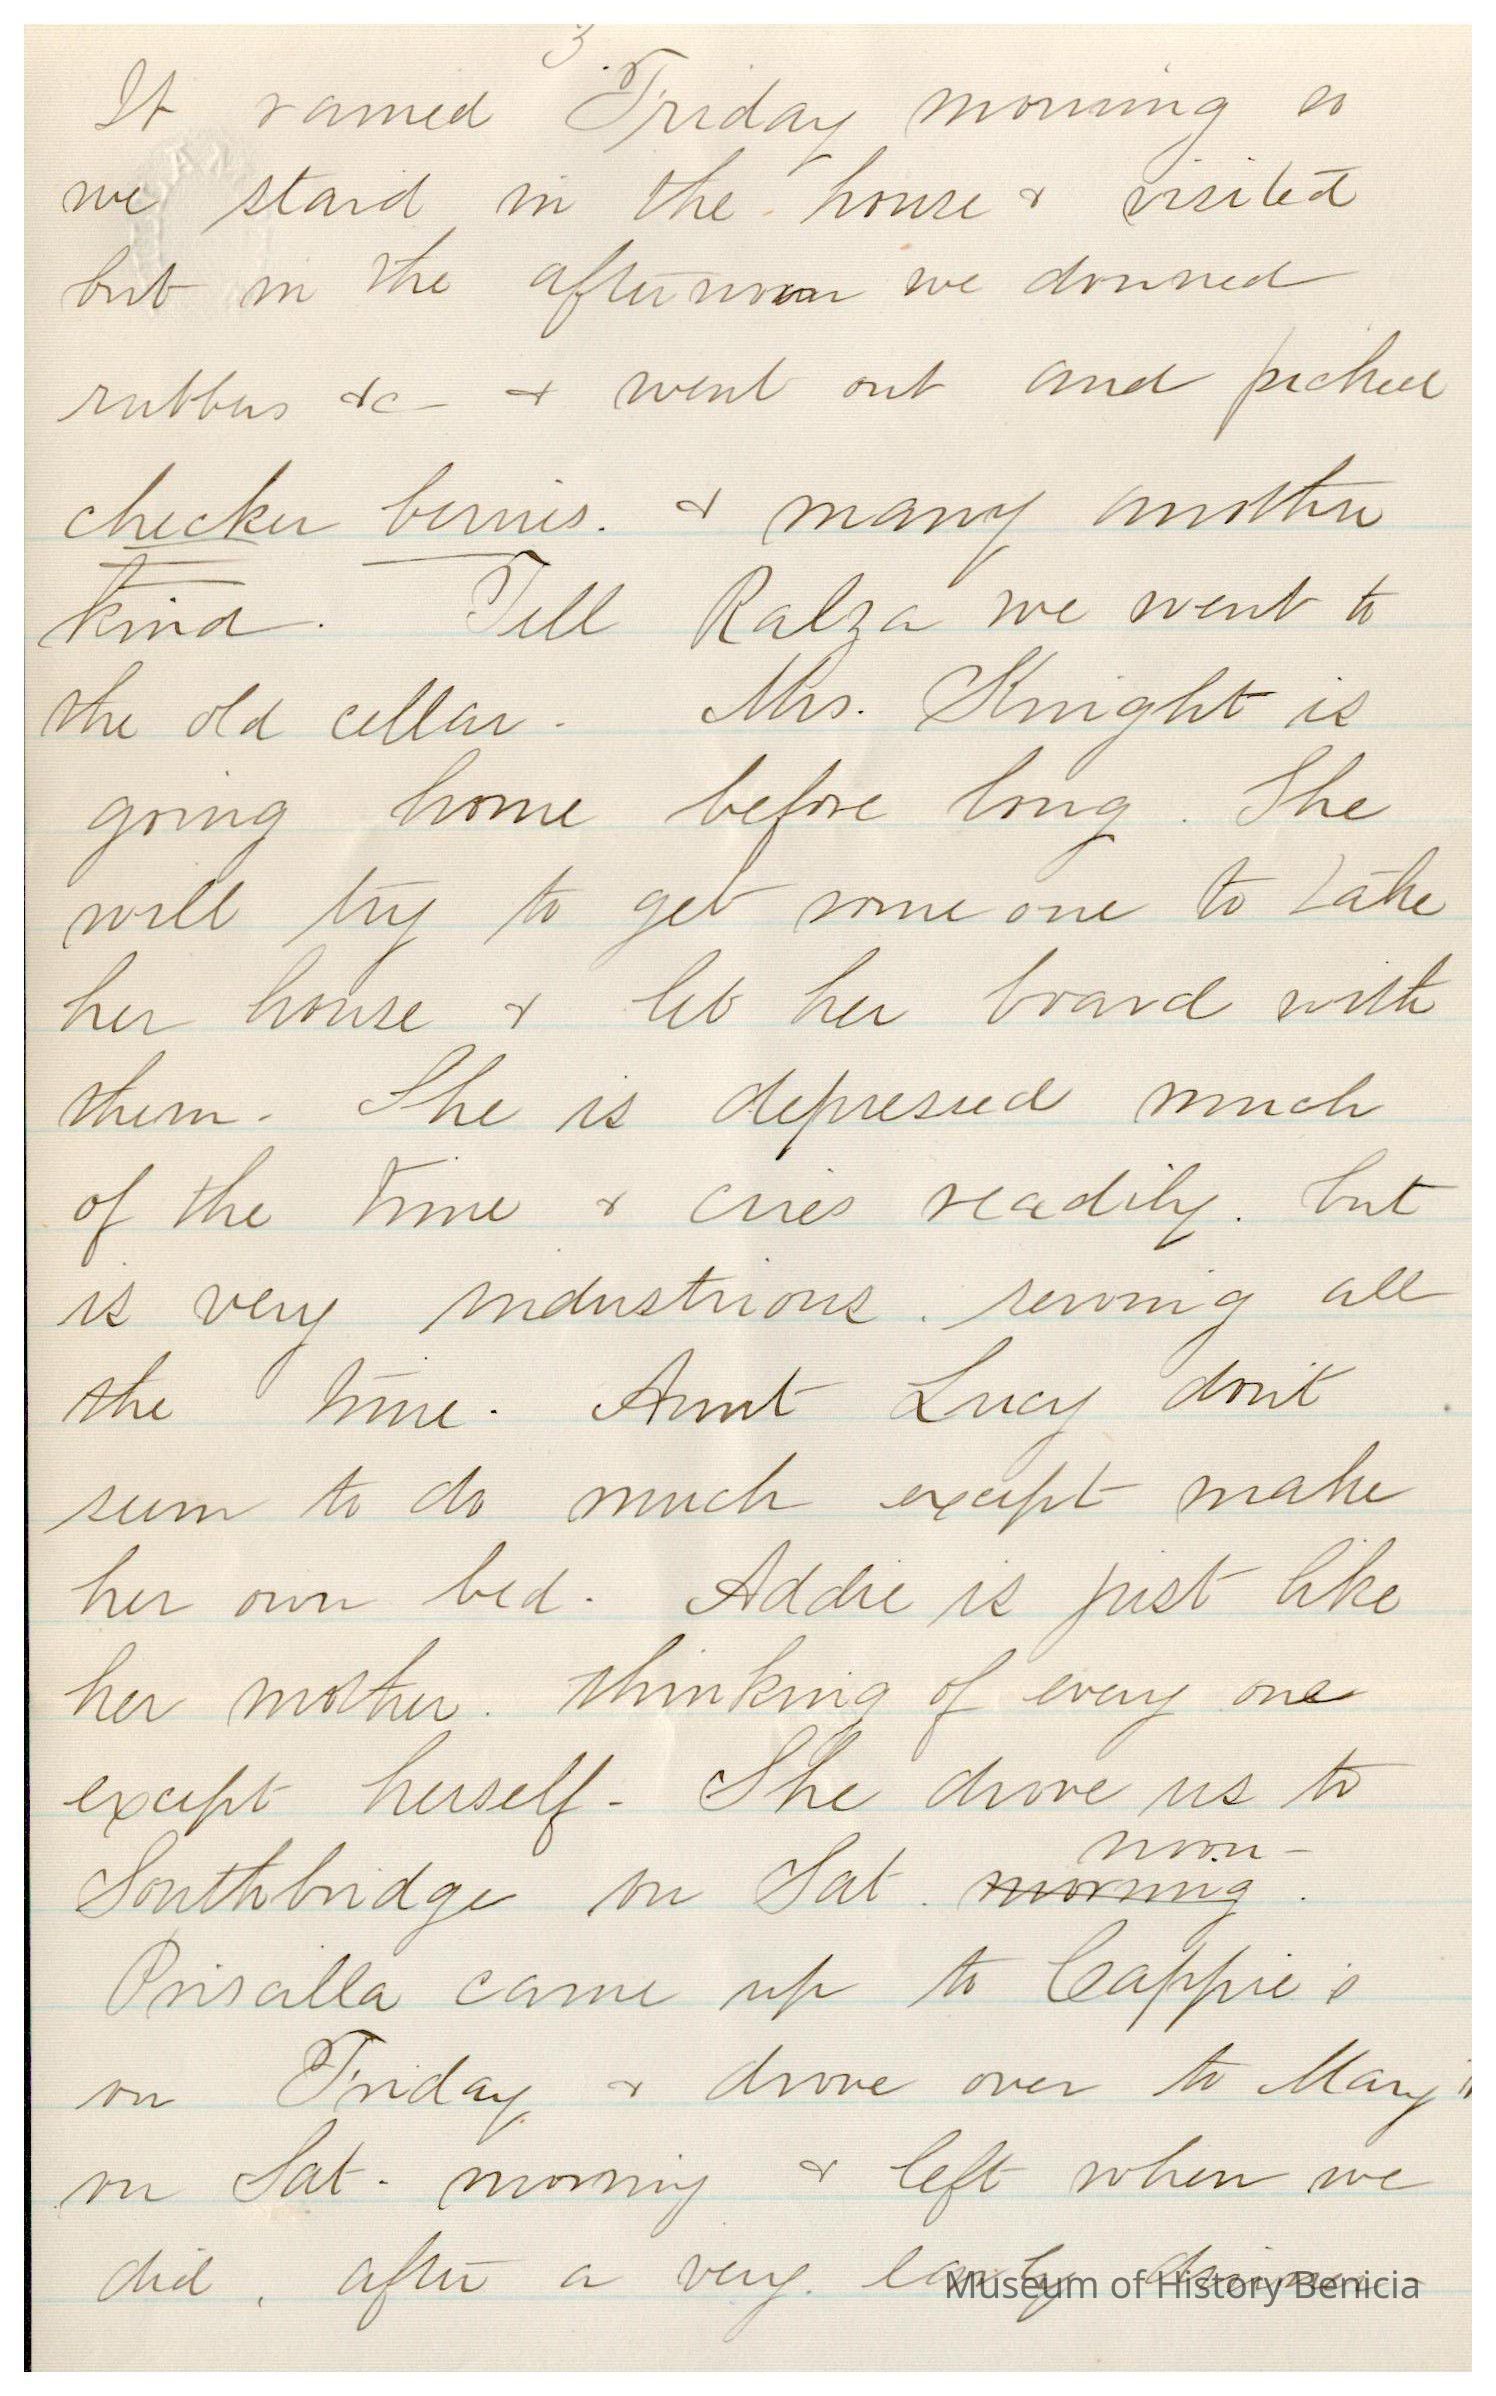 3.
It rained Friday morning so
we staid in the house & visited
but in the afternoon we donned
rubbers &c - & went out and picked
checker berries. & many another
kind. Tell Ralza we went to
the old cellar. Mrs. Knight is
going home before long. She
will try to get some one to take
her house & let her board with
them. She is depressed much
of the time & cries readily. but
is very industrious. sewing all
the time. Aunt Lucy don't
seem to do much except make
her own bed. Addie is just like
her mother. thinking of every one
except herself - She drove us to
noon -
Southbridge on Sat. morning.
Priscilla came up to Cappie's
on Friday & drove over to Mary's
on Sat. morning & left when we
did, after a very early dinner
Museum of History Benicia